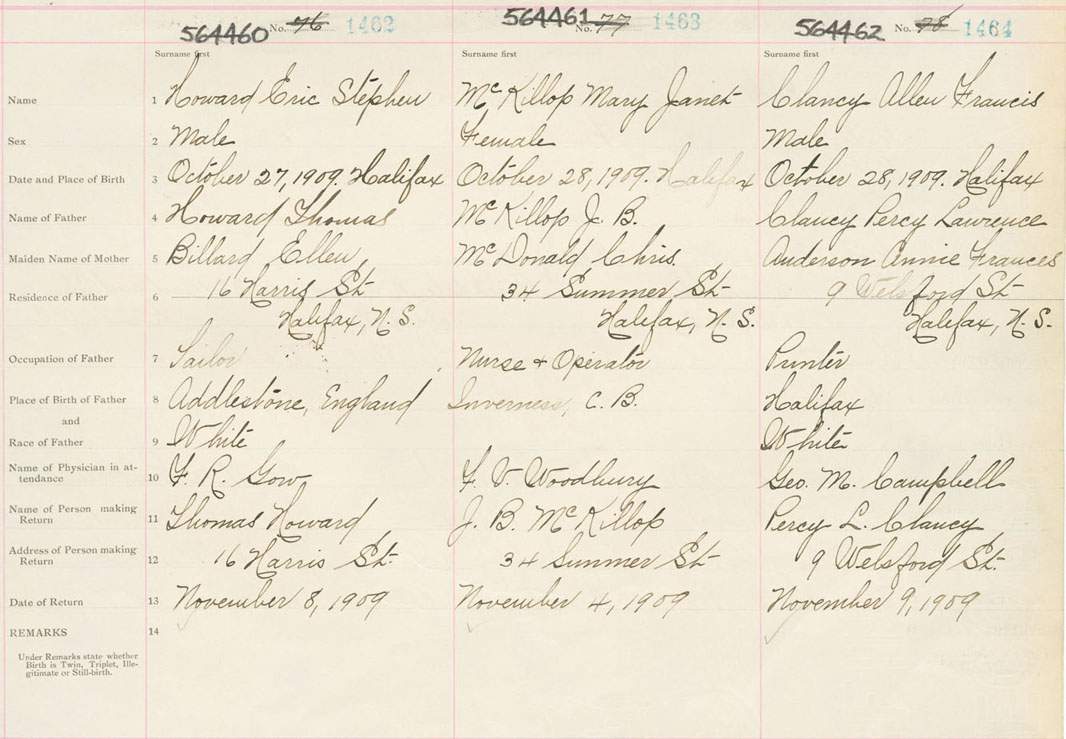 564460 No. 76 1462
564461 No. 77 1463
564462 No. 78 1464
Surname first Surname first Surname first
Name 1 Howard Eric Stephen McKillop Mary Janet Clancy Allen Francis
Sex 2 Male Female Male
Date and Place of Birth 3 October 27, 1909. Halifax October 28, 1909. Halifax October 28, 1909. Halifax
Name of Father 4 Howard Thomas McKillop J. B. Clancy Percy Lawrence
Maiden Name of Mother 5 Billard Ellen McDonald Chris. Anderson Annie Frances
Residence of Father 6 16 Harris St 34 Summer St 9 Welsford St
Halifax, N.S. Halifax, N.S. Halifax, N.S.
Occupation of Father 7 Sailor Nurse + Operator Printer
Place of Birth of Father 8 Addlestone, England Inverness, C. B. Halifax
and
Race of Father 9 White White
Name of Physician in at-
tendance 10 F. R. Gow F. V. Woodbury Geo. M. Campbell
Name of Person making
Return 11 Thomas Howard J. B. McKillop Percy L. Clancy
Address of Person making
Return 12 16 Harris St. 34 Summer St 9 Welsford St.
Date of Return 13 November 8, 1909 November 4, 1909 November 9, 1909
REMARKS 14
Under Remarks state whether
Birth is Twin, Triplet, Ille-
gitimate or Still-birth.